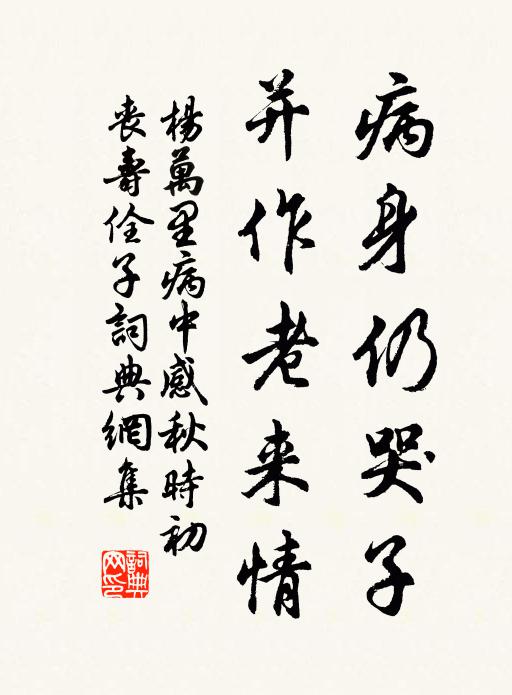 病身仍哭子
并作老来情
楊萬里病中感秋時初
喪壽佺子詞典網集
詞典
网印